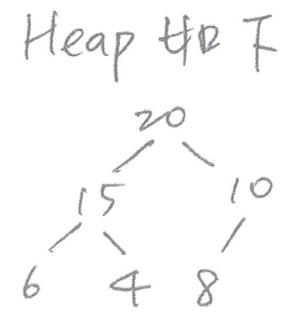 Heap 如下
20
15 10
6 4 8